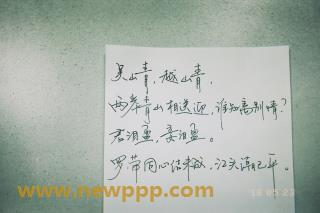 吴山青，越山青，
两岸青山相送迎，谁知离别情？
君泪盈，妾泪盈。
罗带同心结未成，江头潮已平。
www.newppp.com